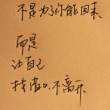 不是为了你能回来
而是
让自己
找借口不离开